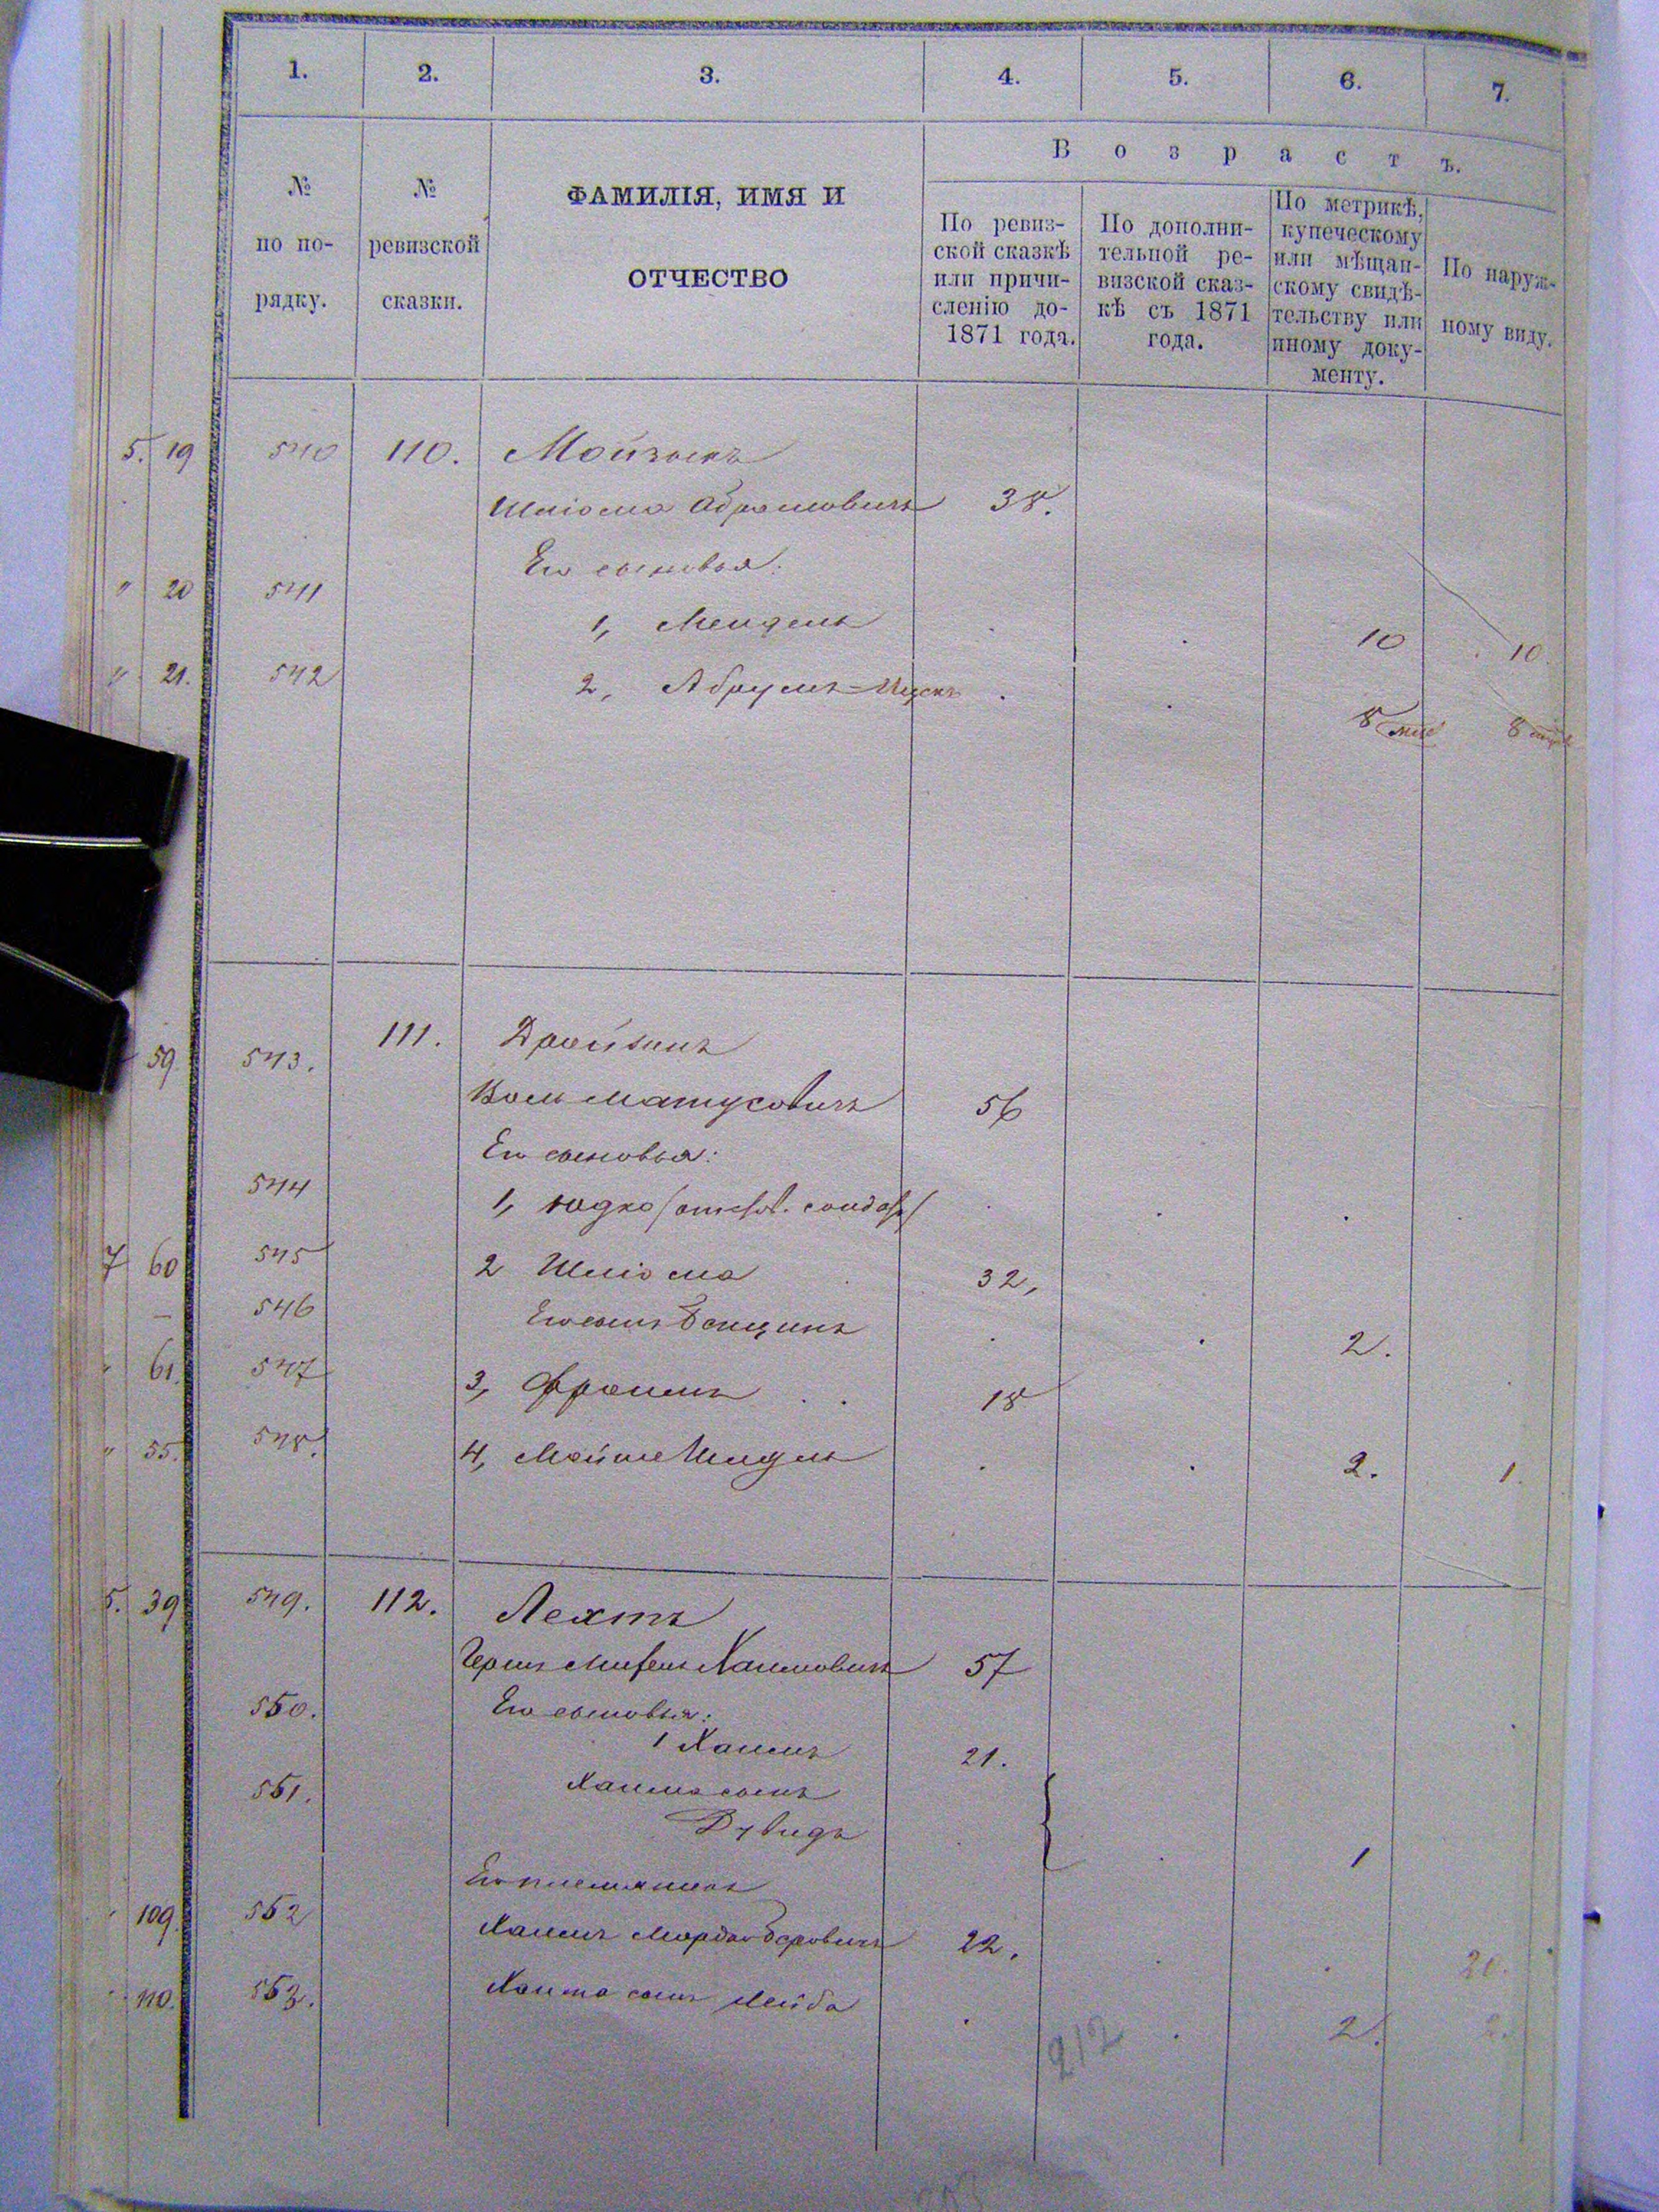 1. 2. 3. 4. 5. 6. 7.
№ по порядку.
№ ревизской сказки.
ФАМИЛІЯ, ИМЯ И ОТЧЕСТВО
В о з р а с т ъ.
По ревиз-
ской сказкѣ
или причи-
сленію до-
1871 года.
По дополни-
тельной ре-
визской сказ-
кѣ съ 1871
года.
По метрикѣ,
купеческому
или мѣщан-
скому свидѣ-
тельству или
иному доку-
менту.
По наруж-
ному виду.
5. 19 540 110.
Шліома Абрамовичъ 38.
Его сыновья:
" 20 541
1, Мендель 10 10.
" 21. 542
2, Абрумъ=Ицекъ 8 мѣс 8 мѣс
59 543. 111.
Матусовичъ 56
Его сыновья:
544
1, Юдко
7 60 545 2 Шліома 32,
546 Его сынъ Бенционъ 2.
" 61. 547 3, Фроимъ 18
" 55. 548. 4, Мойше 2. 1.
5. 39 549. 112. Лехтъ
Хаимовичъ 57
550. Его сыновья:
1 Хаимъ 21.
551. Хаима сынъ
Дувидъ 1
Его племянникъ
109. 552 Хаимъ 22. 20.
110. 553. Хаима сынъ Лейба 2. 2.
212